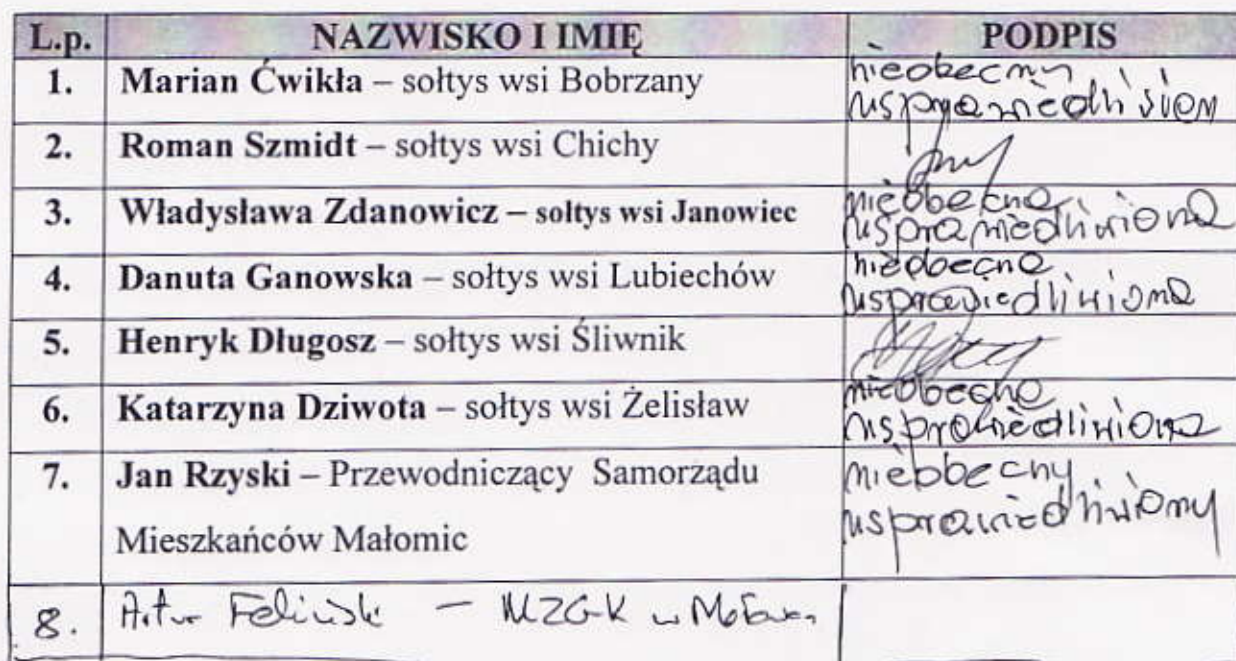 L.p. NAZWISKO I IMIĘ PODPIS
1. Marian Ćwikła – sołtys wsi Bobrzany nieobecny
usprawiedliwiony
2. Roman Szmidt – sołtys wsi Chichy
3. Władysława Zdanowicz – sołtys wsi Janowiec nieobecna
usprawiedliwiona
4. Danuta Ganowska – sołtys wsi Lubiechów nieobecna
usprawiedliwiona
5. Henryk Długosz – sołtys wsi Śliwnik
6. Katarzyna Dziwota – sołtys wsi Żelisław nieobecna
usprawiedliwiona
7. Jan Rzyski – Przewodniczący Samorządu nieobecny
usprawiedliwiony
Mieszkańców Małomic
8. Artur Feliński – MZGK w